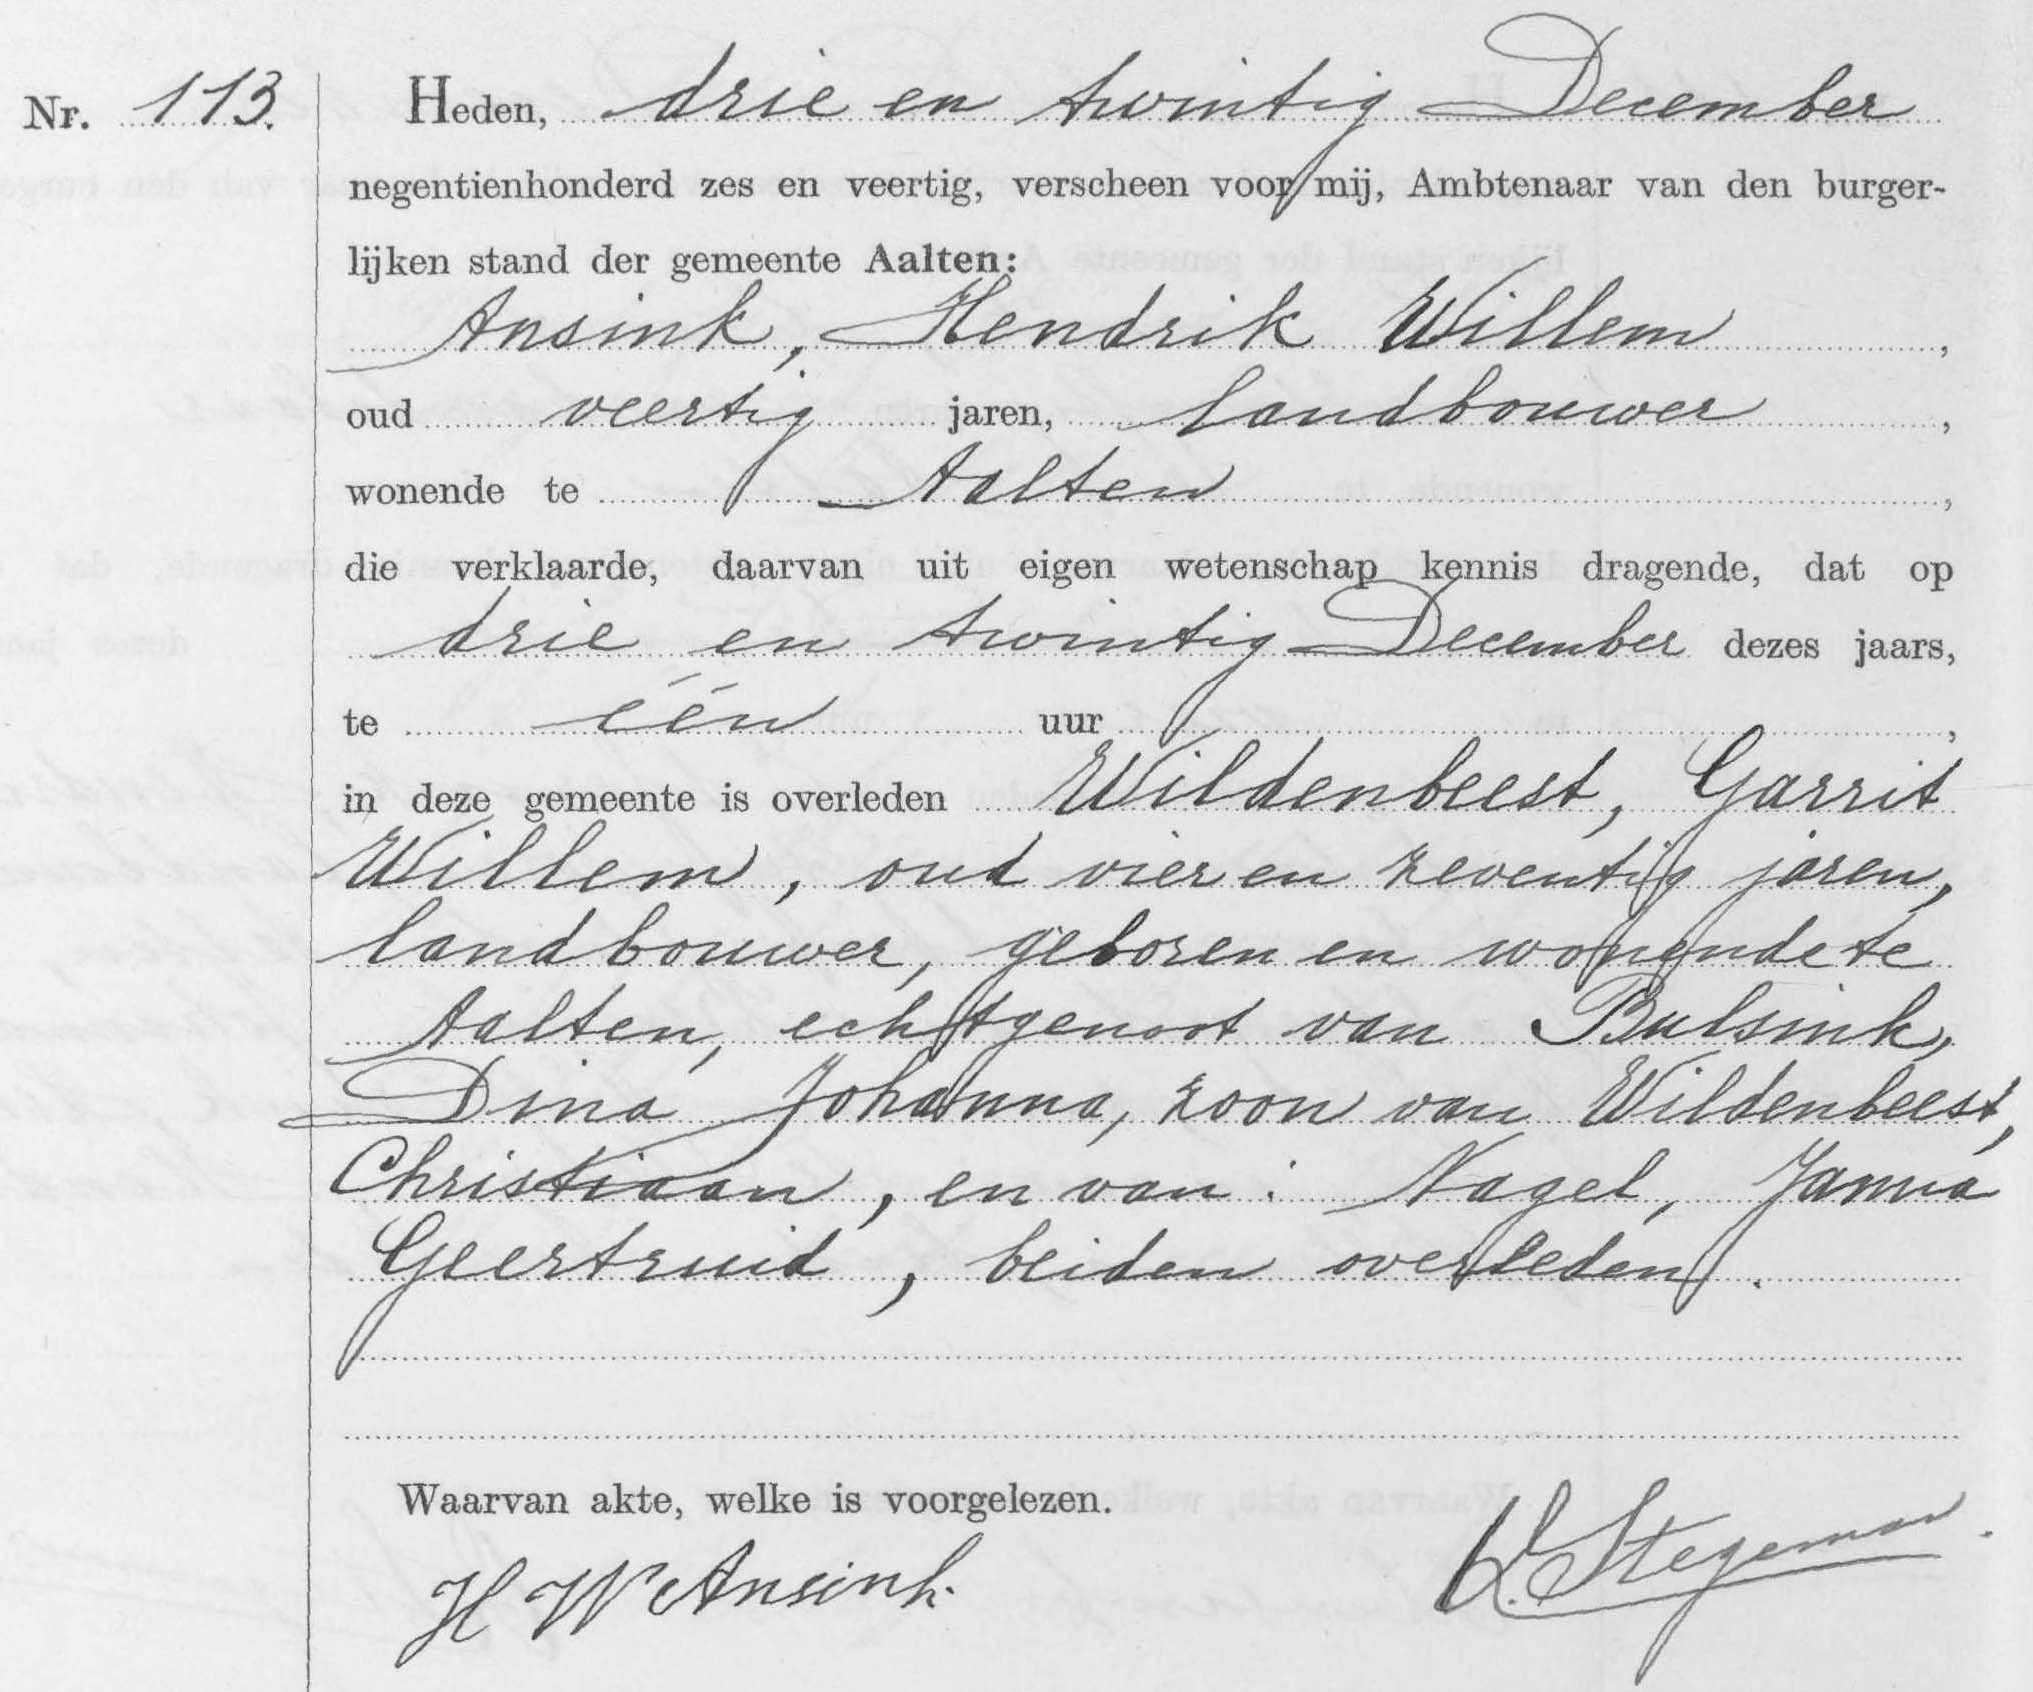 Nr. 113. Heden, drie en twintig December
negentienhonderd zes en veertig, verscheen voor mij, Ambtenaar van den burger-
lijken stand der gemeente Aalten:
Ansink, Hendrik Willem,
oud veertig jaren, landbouwer,
wonende te Aalten,
die verklaarde, daarvan uit eigen wetenschap kennis dragende, dat op
drie en twintig December dezes jaars,
te één uur,
in deze gemeente is overleden Wildenbeest, Garrit
Willem, oud vier en zeventig jaren,
landbouwer, geboren en wonende te
Aalten, echtgenoot van Bulsink,
Dina Johanna, zoon van Wildenbeest,
Christiaan, en van: Nagel, Janna
Geertruid, beiden overleden.
Waarvan akte, welke is voorgelezen.
H W Ansink. Stegeman.